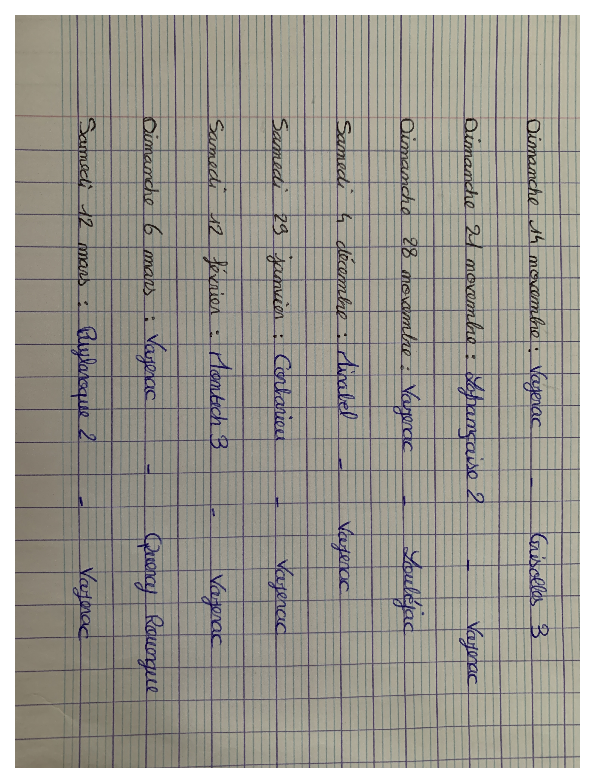 Dimanche 14 novembre : Vazerac - Grisolles 3
Dimanche 21 novembre : Lafrançaise 2 - Vazerac
Dimanche 28 novembre : Vazerac - Loubéjac
Samedi 4 décembre : Mirabel - Vazerac
Samedi 29 janvier : Corbarieu - Vazerac
Samedi 12 février : Montech 3 - Vazerac
Dimanche 6 mars : Vazerac - Quercy Rouergue
Samedi 12 mars : Puylaroque 2 - Vazerac